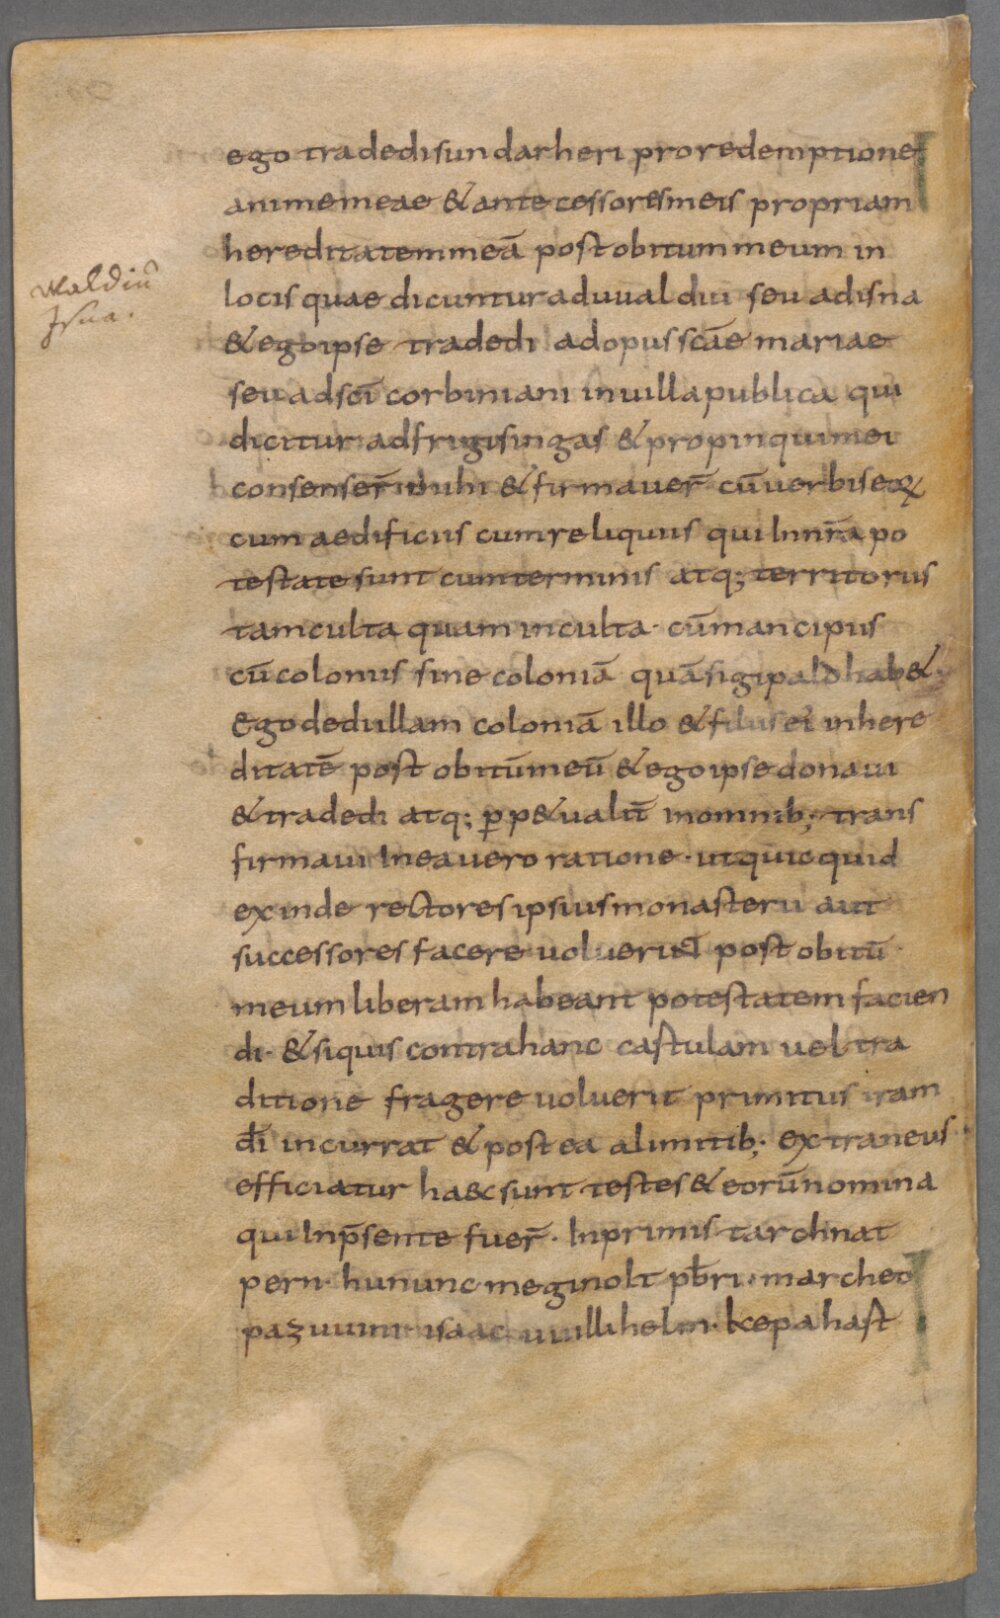 Waldiū
Isna.
ego tradedi sundarheri pro redemptione
anime meae & antecessores meis propriam
hereditatem meā post obitum meum in
locis quae dicuntur ad uualdiu seu ad isna
& ego ipse tradedi ad opus scāe mariae
seu ad scī corbiniani in uilla publica qui
dicitur ad frigisingas & propinqui mei
consenser̄ mihi & firmauer̄ cū uerbis eoꝝ
cum aedificiis cum reliquiis qui In nr̄a po
testate sunt cum terminis atq; territoriis
tam culta quam inculta · cū mancipiis
cū coloniis sine coloniā quā sigipald hab&·
Ego dedi illam coloniā illo & filiis ei in here
ditatē post obitū meū & ego ipse donaui
& tradedi atq; ꝑp&ualit̄ in omnib; trans
firmaui In ea uero ratione · ut quicquid
exinde rectores ipsius monasterii aut
successores facere uoluerint post obitū
meum liberam habeant potestatem facien
di · & siquis contra hanc castulam uel tra
ditione fragere uoluerit primitus iram
dī incurrat & postea a limitib; extraneus
efficiatur ha&c sunt testes & eorū nomina
qui In p̄sente fuer̄ · In primis tarchnat
pern · hununc · meginolt pb̄ri · marcheo
pazuuini · isaac · uuillihelm · kepahast